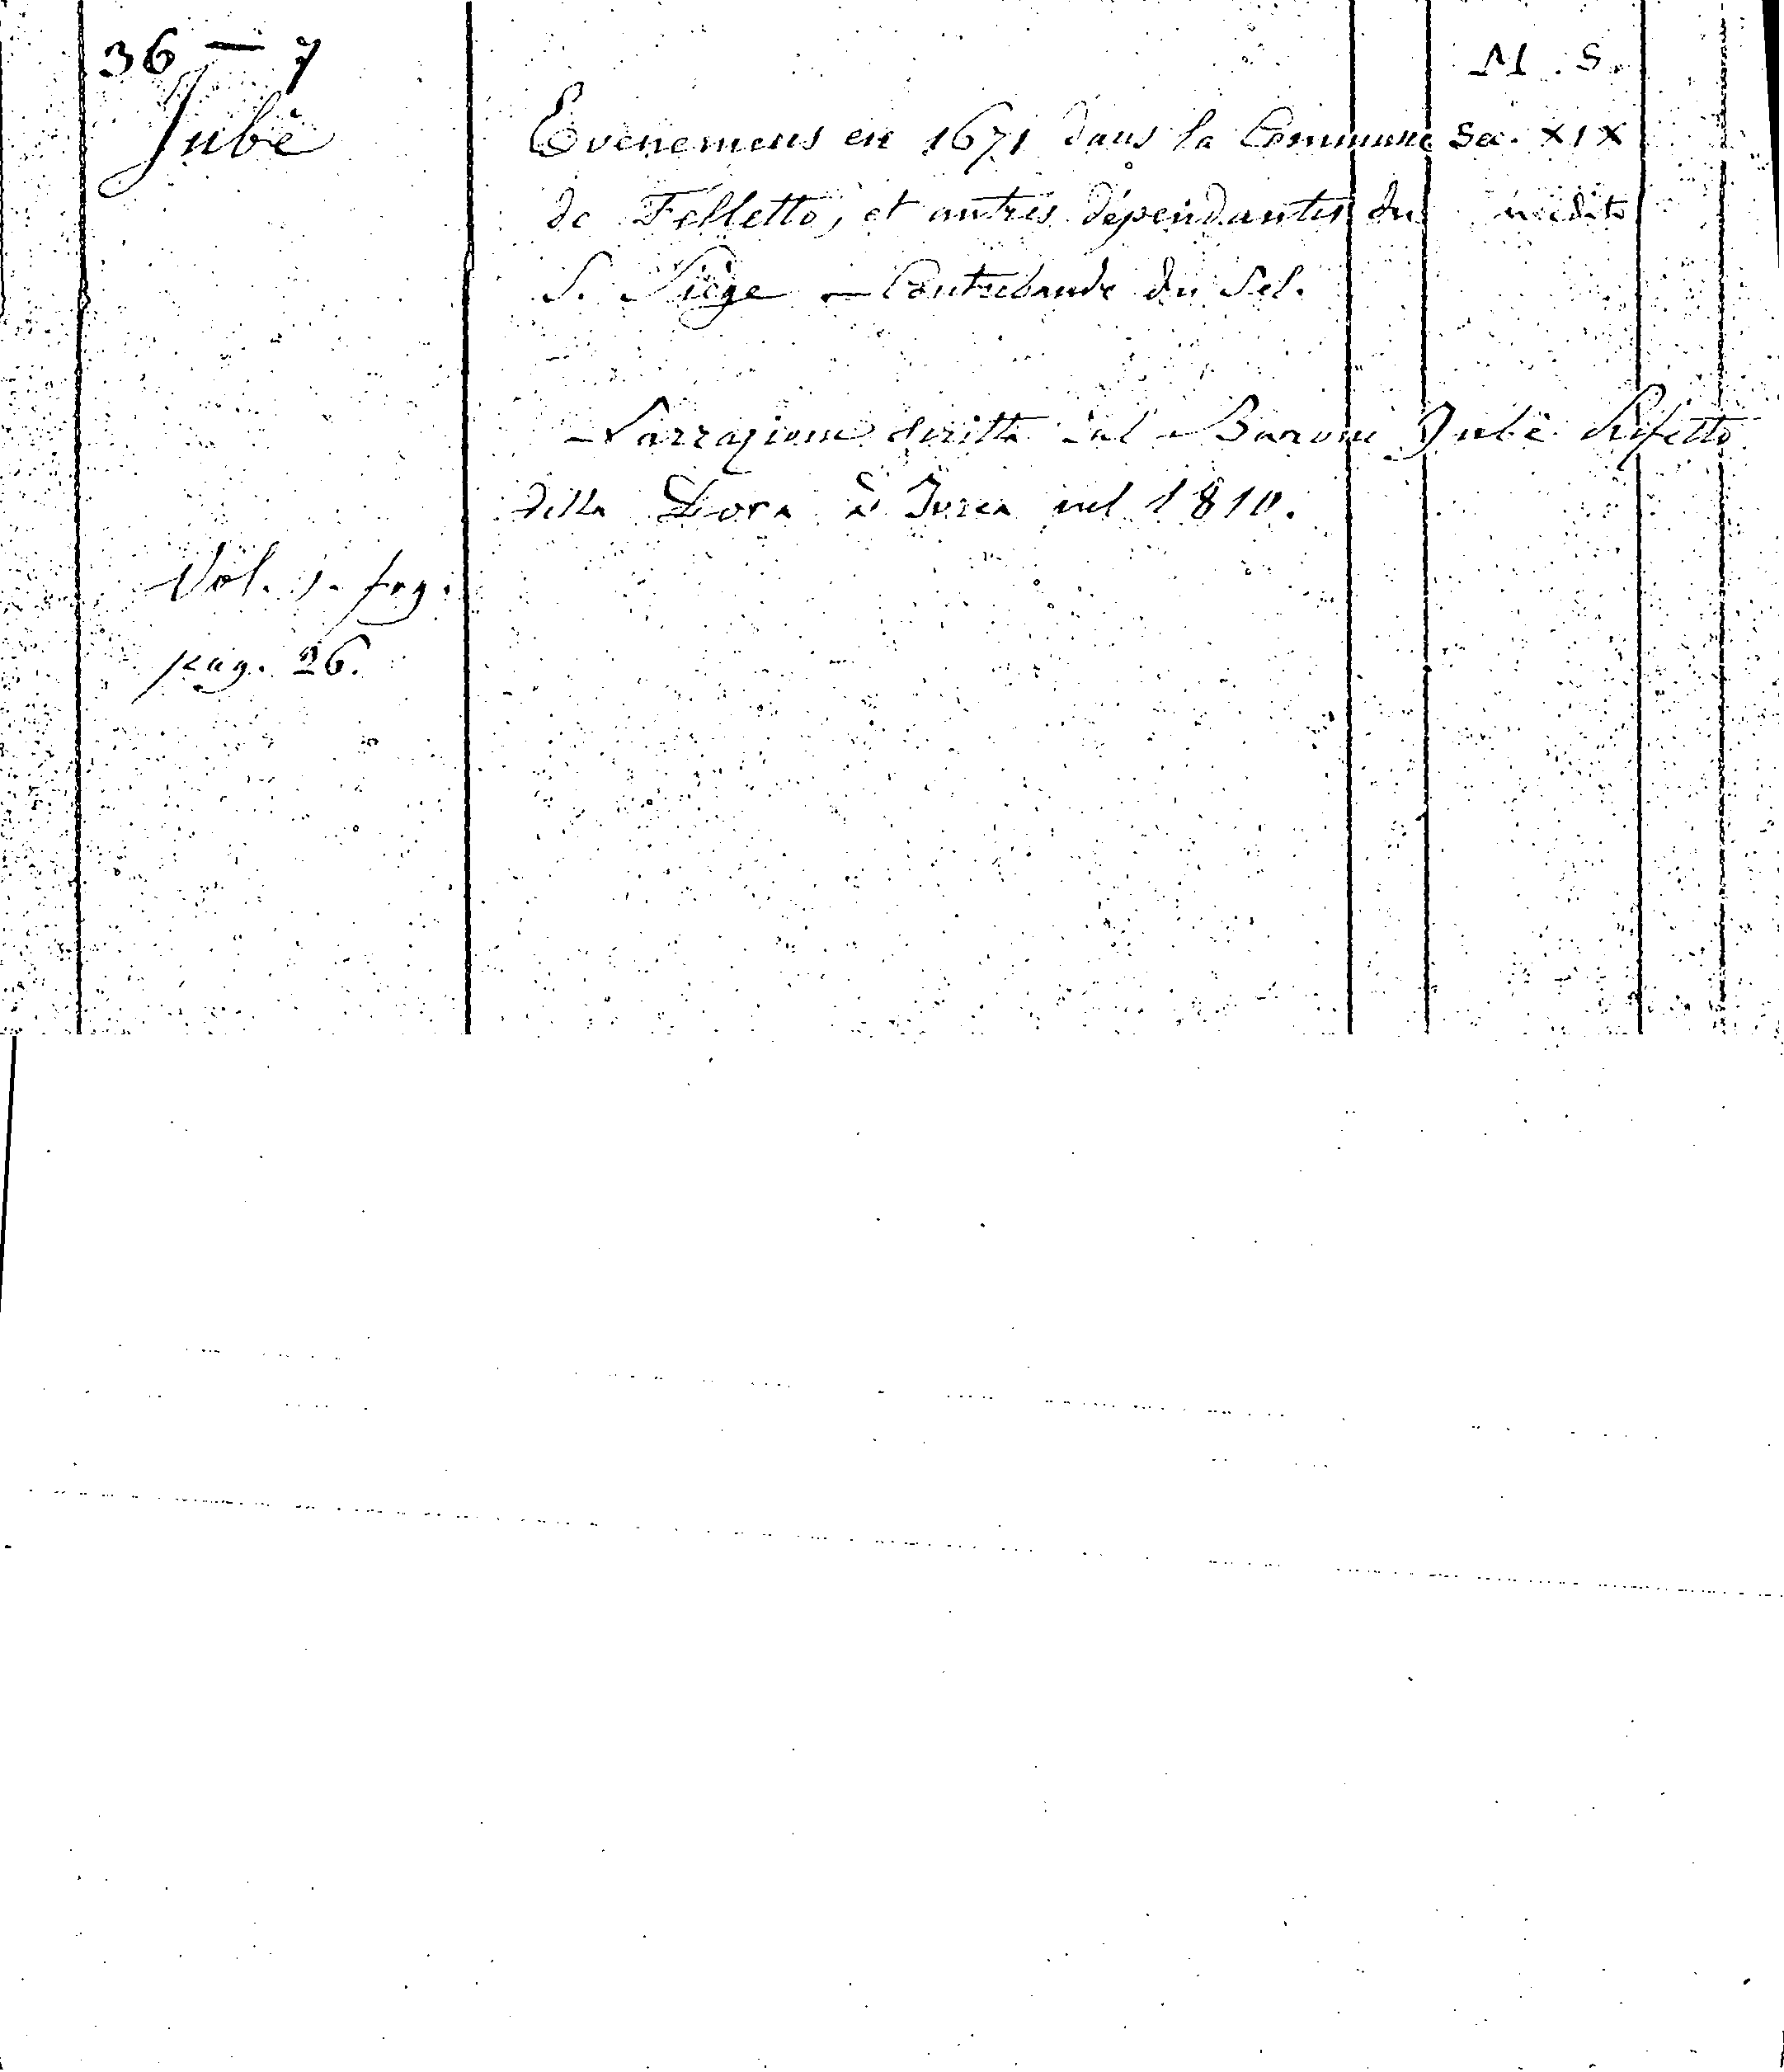 36 — 7
M. S.
Jubé
Evenemens en 1671 dans la Commune
Sec. XIX
de Felletto, et autres dépendantes du
inedito
S. Siège — Contrebande du Sel.
Narrazione scritta dal Barone Jubé Prefetto
della Dora à Ivrea nel 1810.
Vol. 1. fog.
pag. 26.